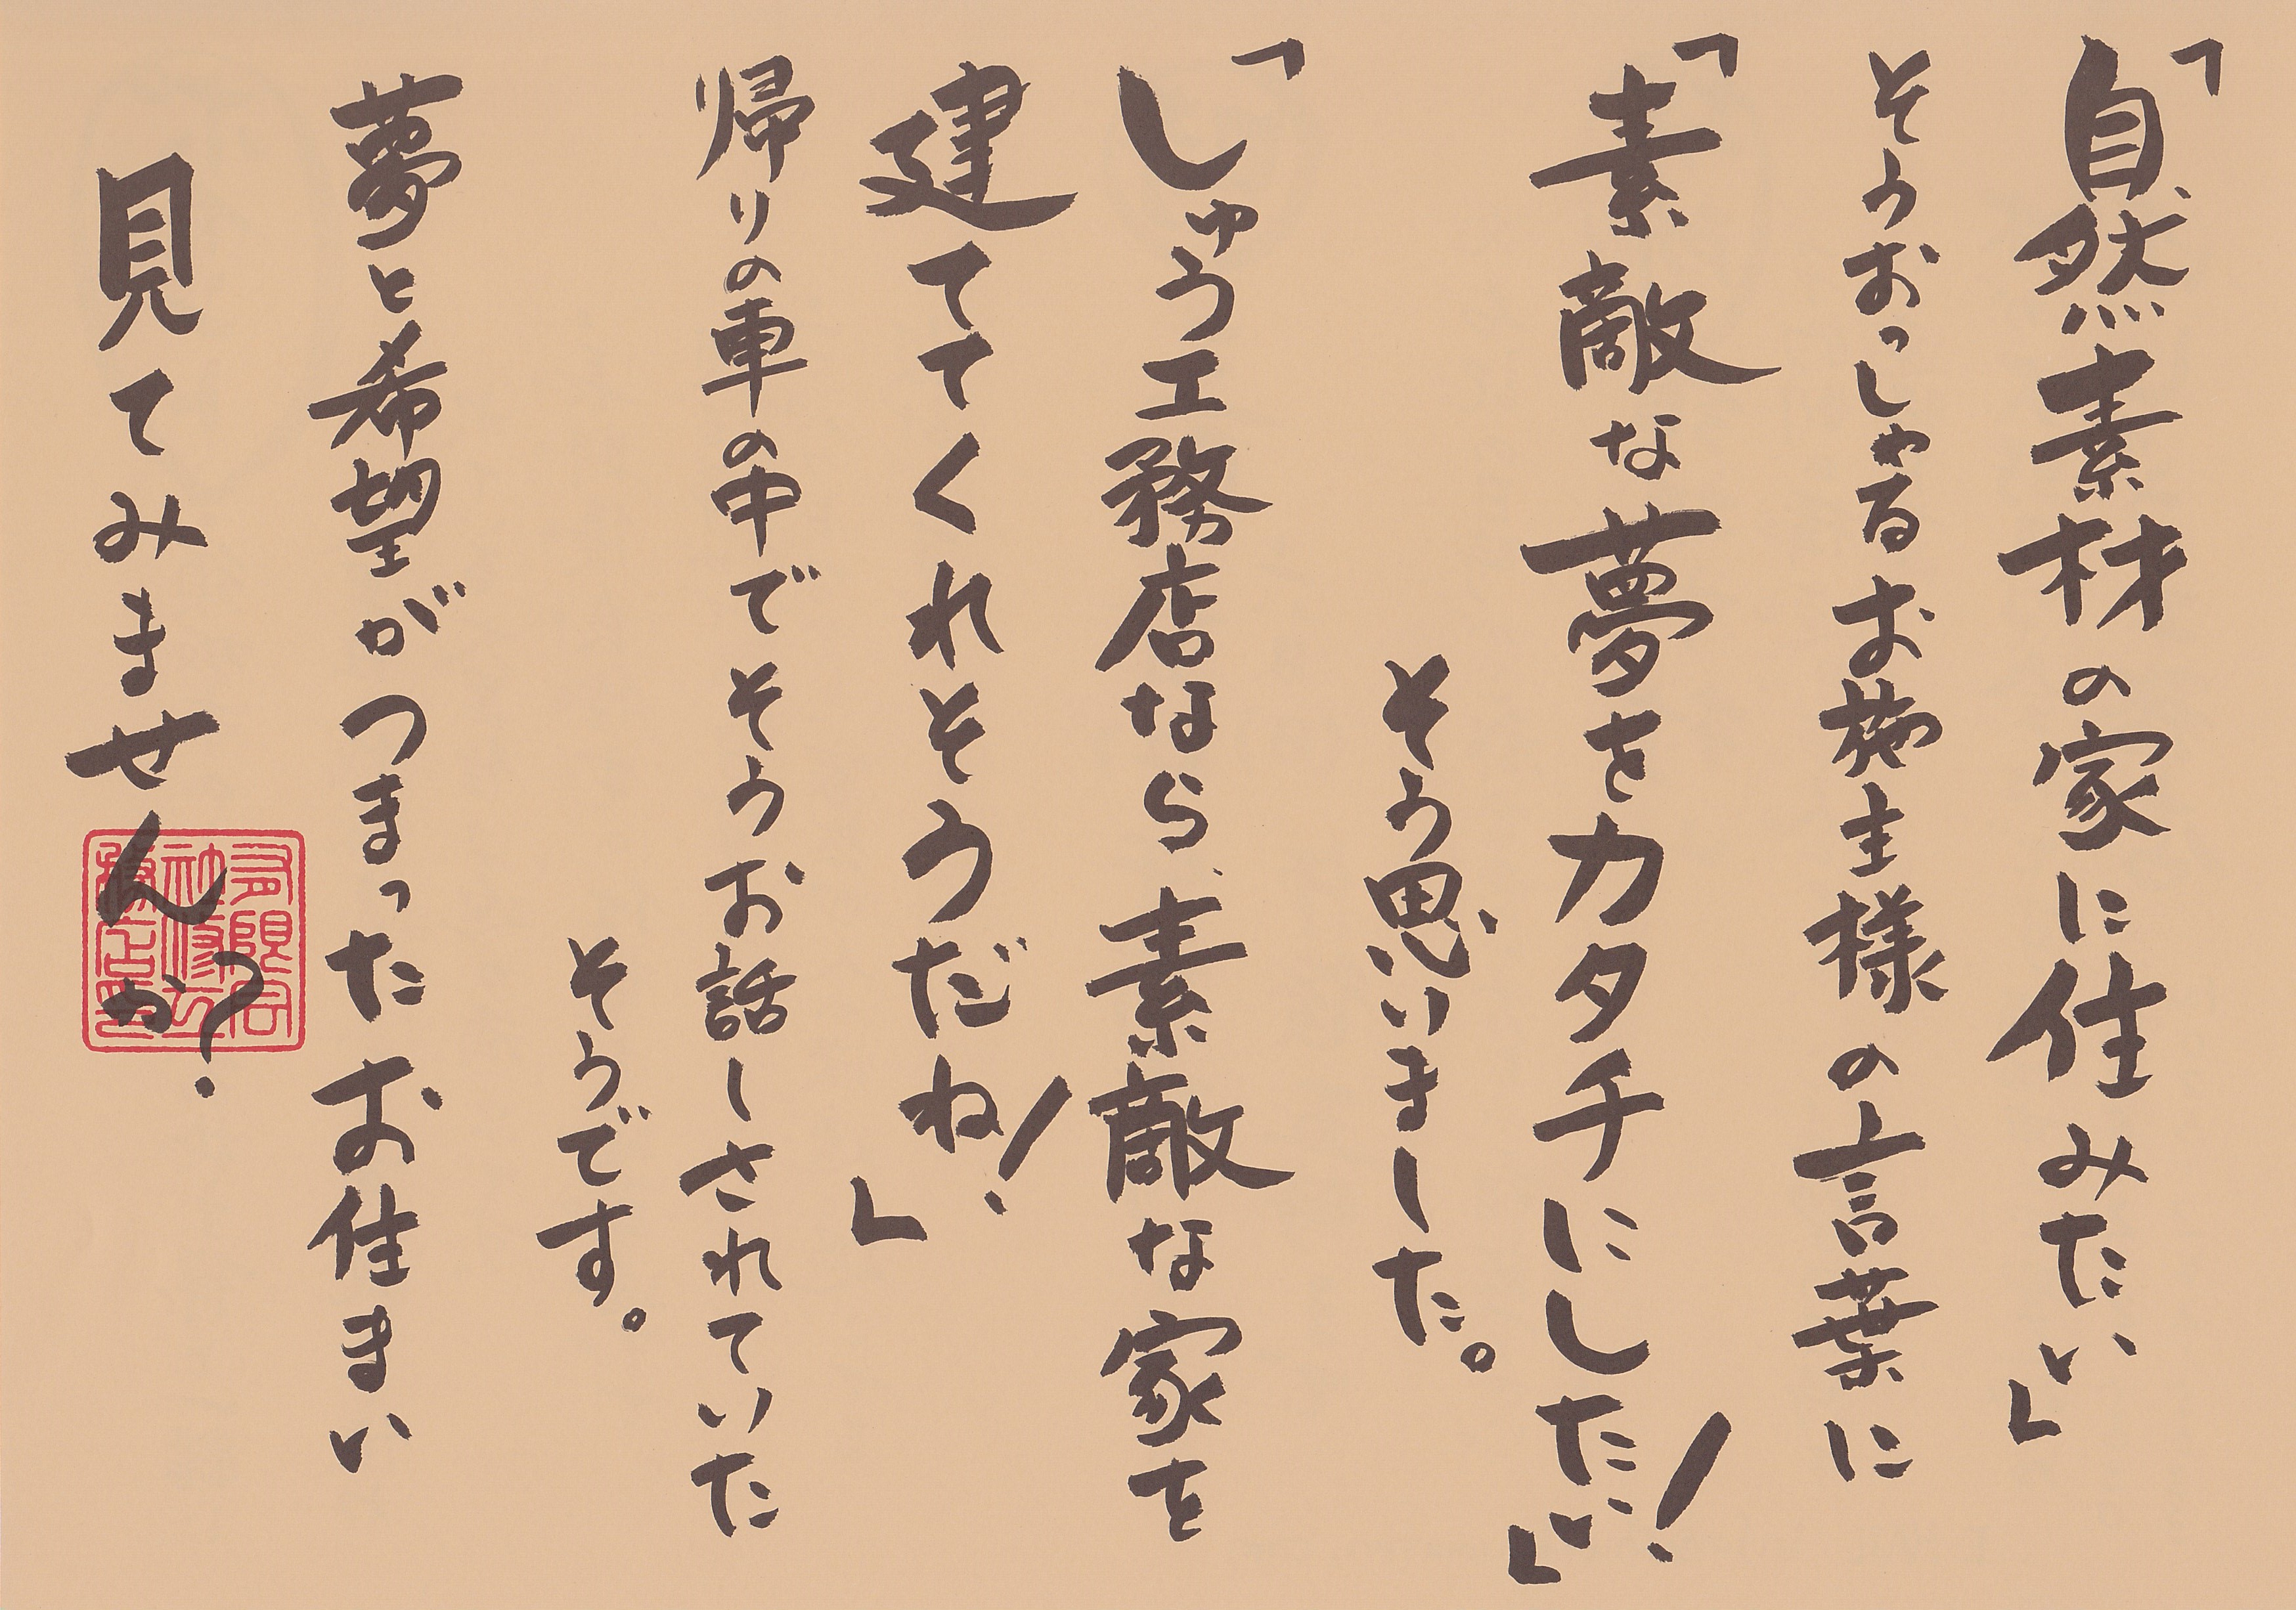 「自然素材の家に住みたい」
そうおっしゃるお施主様の言葉に
「素敵な夢をカタチにしたい!」
そう思いました。
「しゅう工務店なら、素敵な家を
建ててくれそうだね!」
帰りの車の中でそうお話しされていた
そうです。
夢と希望がつまったお住まい
見てみませんか?